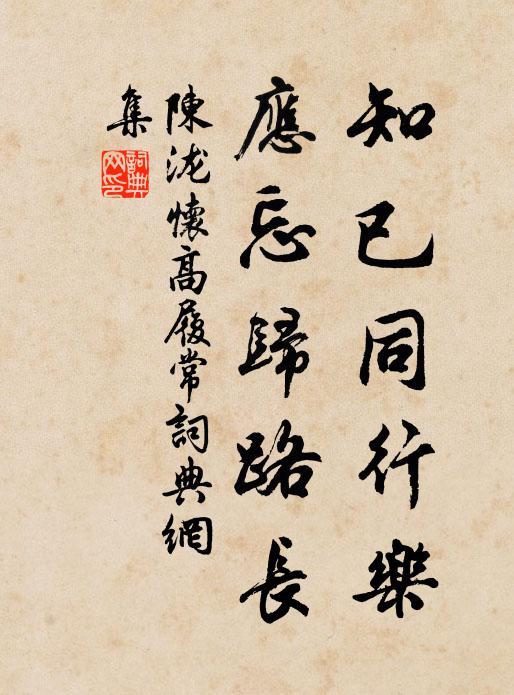 知已同行樂
應忘歸路長
陳泷懷高履常詞典網
集
詞典網印